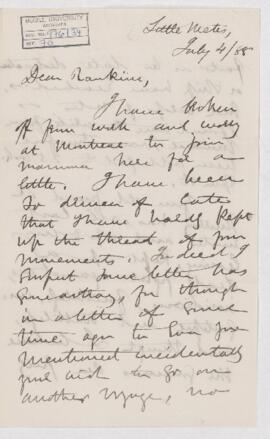 McGILL UNIVERSITY
ARCHIVES
ACC. NO.
REF.
Little Metis,
July 4/88
Dear Rankine,
I have broken
off from work and
at Montreal to join
mamma here for a
little. I have been
so of late
that I have hardly kept
up the thread of your
movements. Indeed I
suspect some letter has
for though
in a letter of some
time ago to you
mentioned incidentally
your wish to go on
another voyage, no